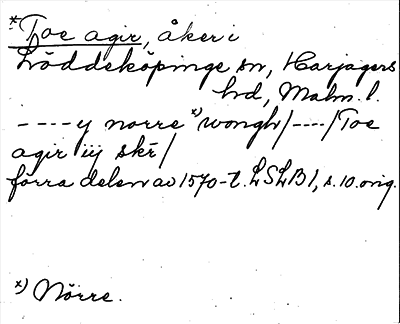 *Toe agir, åker i
Löddeköpinge sn, Harjagers
hd, Malm. l.
----y norre *) wongh/----/Toe
agir iij skr̄/
förra delen av 1570-t. LSLB1, s. 10. orig.
*) Nörre.